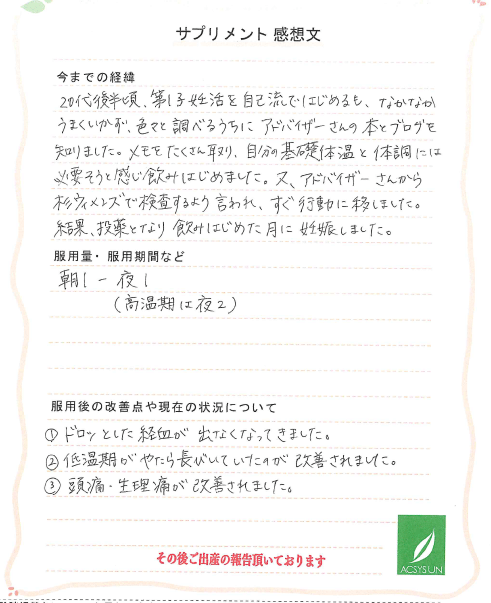 サプリメント 感想文
今までの経緯
20代後半頃、第1子妊活を自己流ではじめるも、なかなか
うまくいかず、色々と調べるうちにアドバイザーさんの本とブログを
知りました。メモをたくさん取り、自分の基礎体温と体調には
必要そうと感じ飲みはじめました。又、アドバイザーさんから
杉ウィメンズで検査するよう言われ、すぐ行動に移しました。
結果、投薬となり飲みはじめた月に妊娠しました。
服用量・服用期間など
朝1 - 夜1
(高温期は夜2)
服用後の改善点や現在の状況について
① ドロッとした経血が出なくなってきました。
② 低温期がやたら長びいていたのが改善されました。
③ 頭痛・生理痛が改善されました。
その後ご出産の報告頂いております
ACSYSUN